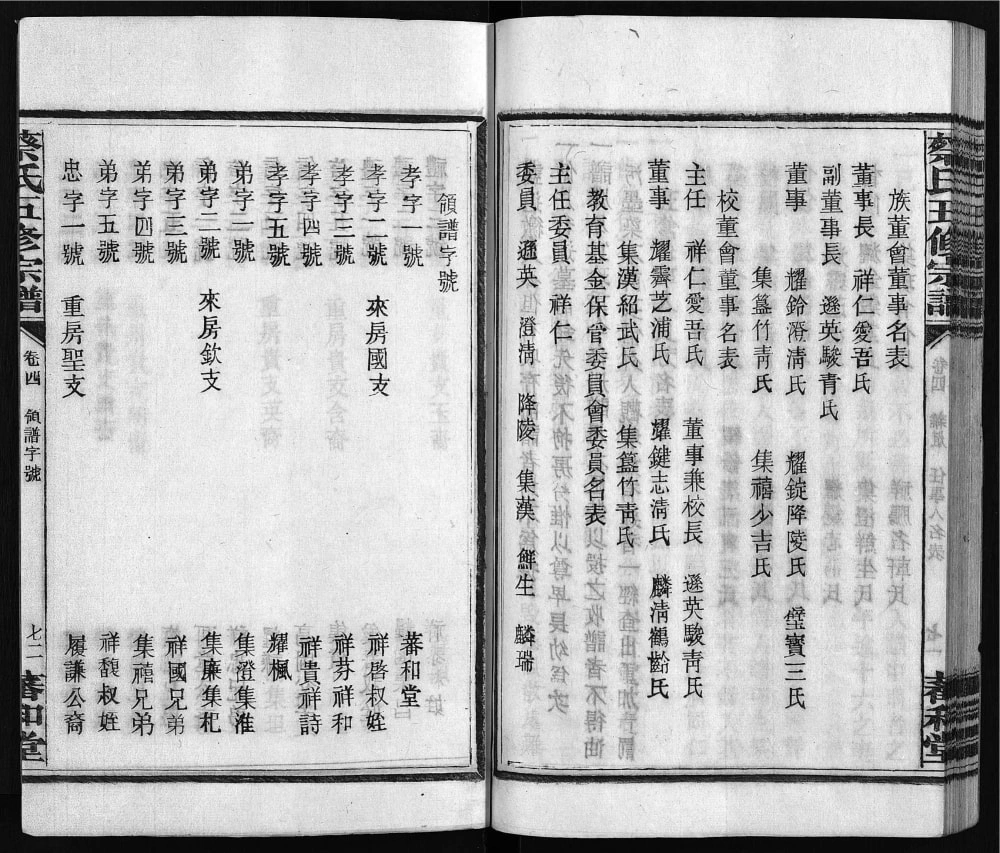 蔡氏五修宗譜
卷四 雜㫌 任事人名表
七一
蕃和堂
族董會董事名表
董事長 祥仁愛吾氏
副董事長 遜英駿青氏
董事 耀鈴澄清氏 耀錠降陵氏 瑩寶三氏
集簋竹青氏 集禧少吉氏
校董會董事名表
主任 祥仁愛吾氏 董事兼校長 遜英駿青氏
董事 耀霽芝浦氏 耀鍵志清氏 麟清鶴齡氏
集漢紹武氏 集簋竹青氏
教育基金保管委員會委員名表
主任委員 祥仁
委員 遜英 澄清 降陵 集漢 鮮生 麟瑞
領譜字號
孝字一號 蕃和堂
孝字二號 來房國支 祥啓叔姪
孝字三號 祥芬祥和
孝字四號 祥貴祥詩
孝字五號 耀楓
弟字一號 集澄集淮
弟字二號 來房欽支 集廉集杞
弟字三號 祥國兄弟
弟字四號 集禧兄弟
弟字五號 祥馥叔姪
忠字一號 重房聖支 履謙公裔
蔡氏五修宗譜
卷四 領譜字號
七二
蕃和堂